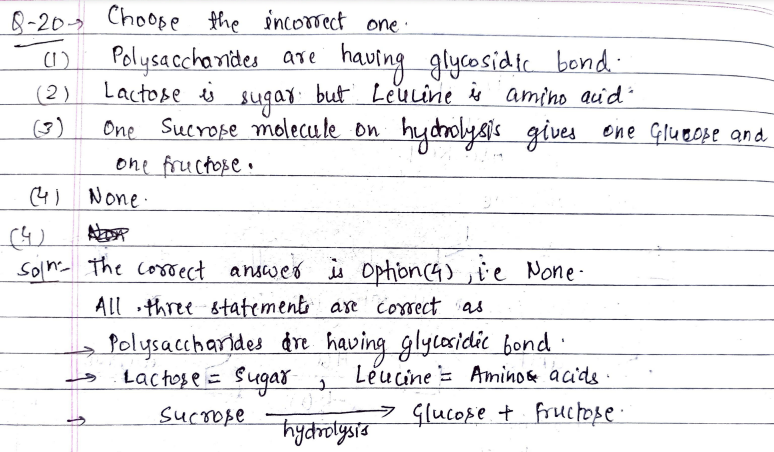 Q-20→ Choose the incorrect one.
(1) Polysaccharides are having glycosidic bond.
(2) Lactose is sugar but Leucine is amino acid.
(3) One Sucrose molecule on hydrolysis gives one Glucose and
one fructose.
(4) None.
(4)
Soln:- The correct answer is Option(4), i.e None.
All three statements are correct as
→ Polysaccharides are having glycosidic bond.
→ Lactose = Sugar ; Leucine = Amino acids.
→ Sucrose → Glucose + fructose.
hydrolysis